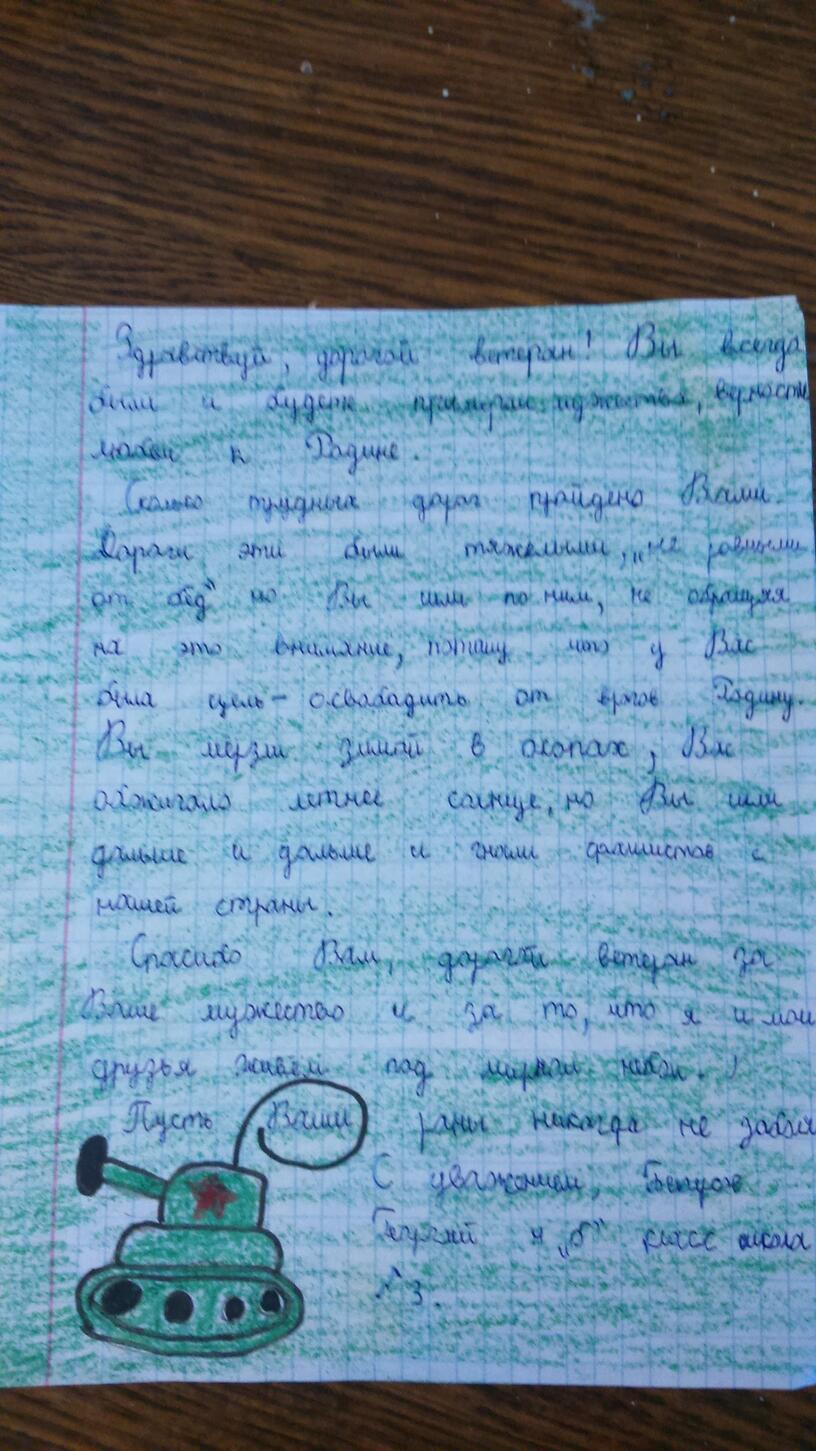 Здравствуй, дорогой ветеран! Вы всегда
были и будете примером мужества, верности
любви к Радине.
Сколько трудных дорог пройдено Вами.
Дороги эти были тяжелыми, „не ровными
от бед" но Вы шли по ним, не обращяя
на это внимание, потому что у Вас
была цель - освабадить от врагов Радину.
Вы мерзли зимой в окопах, Вас
обжигало летнее солнце, но Вы шли
дальше и дальше и гнали фашистов с
нашей страны.
Спасибо Вам, дорогой ветеран за
Ваше мужество и за то, что я и мои
друзья живём под мирном небом.
Пусть Ваши раны никогда не забол
С уважением,
Георгий 4 „б" класс школа
№3.